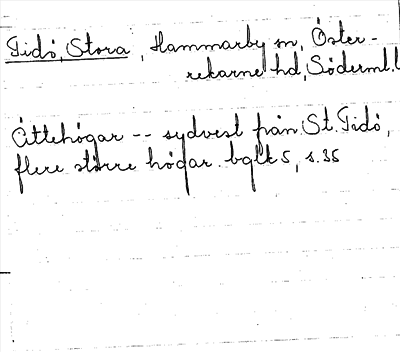 Tidö, Stora, Hammarby sn, Öster-
rekarne hd, Söderml.l
Ättehögar -- sydvest från St. Tidö,
flere större högar. bglk 5, s. 35